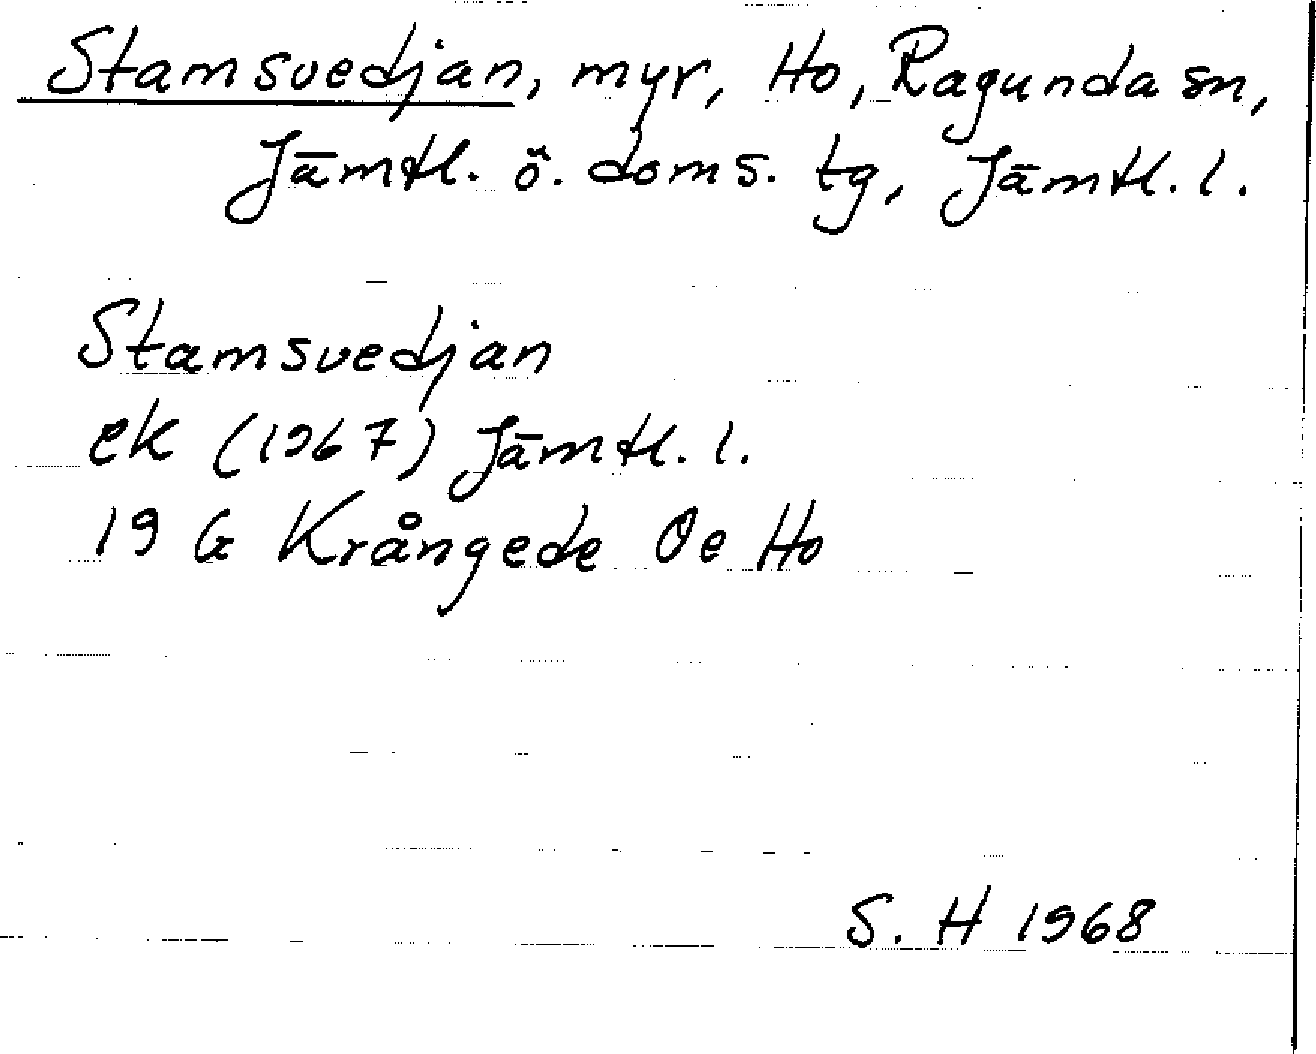 Stamsvedjan, myr, Ho, Ragunda sn,
Jämtl. ö. doms. tg, Jämtl. l.
Stamsvedjan
ek (1967) Jämtl. l.
19 G Krångede Oe Ho
S. H 1968